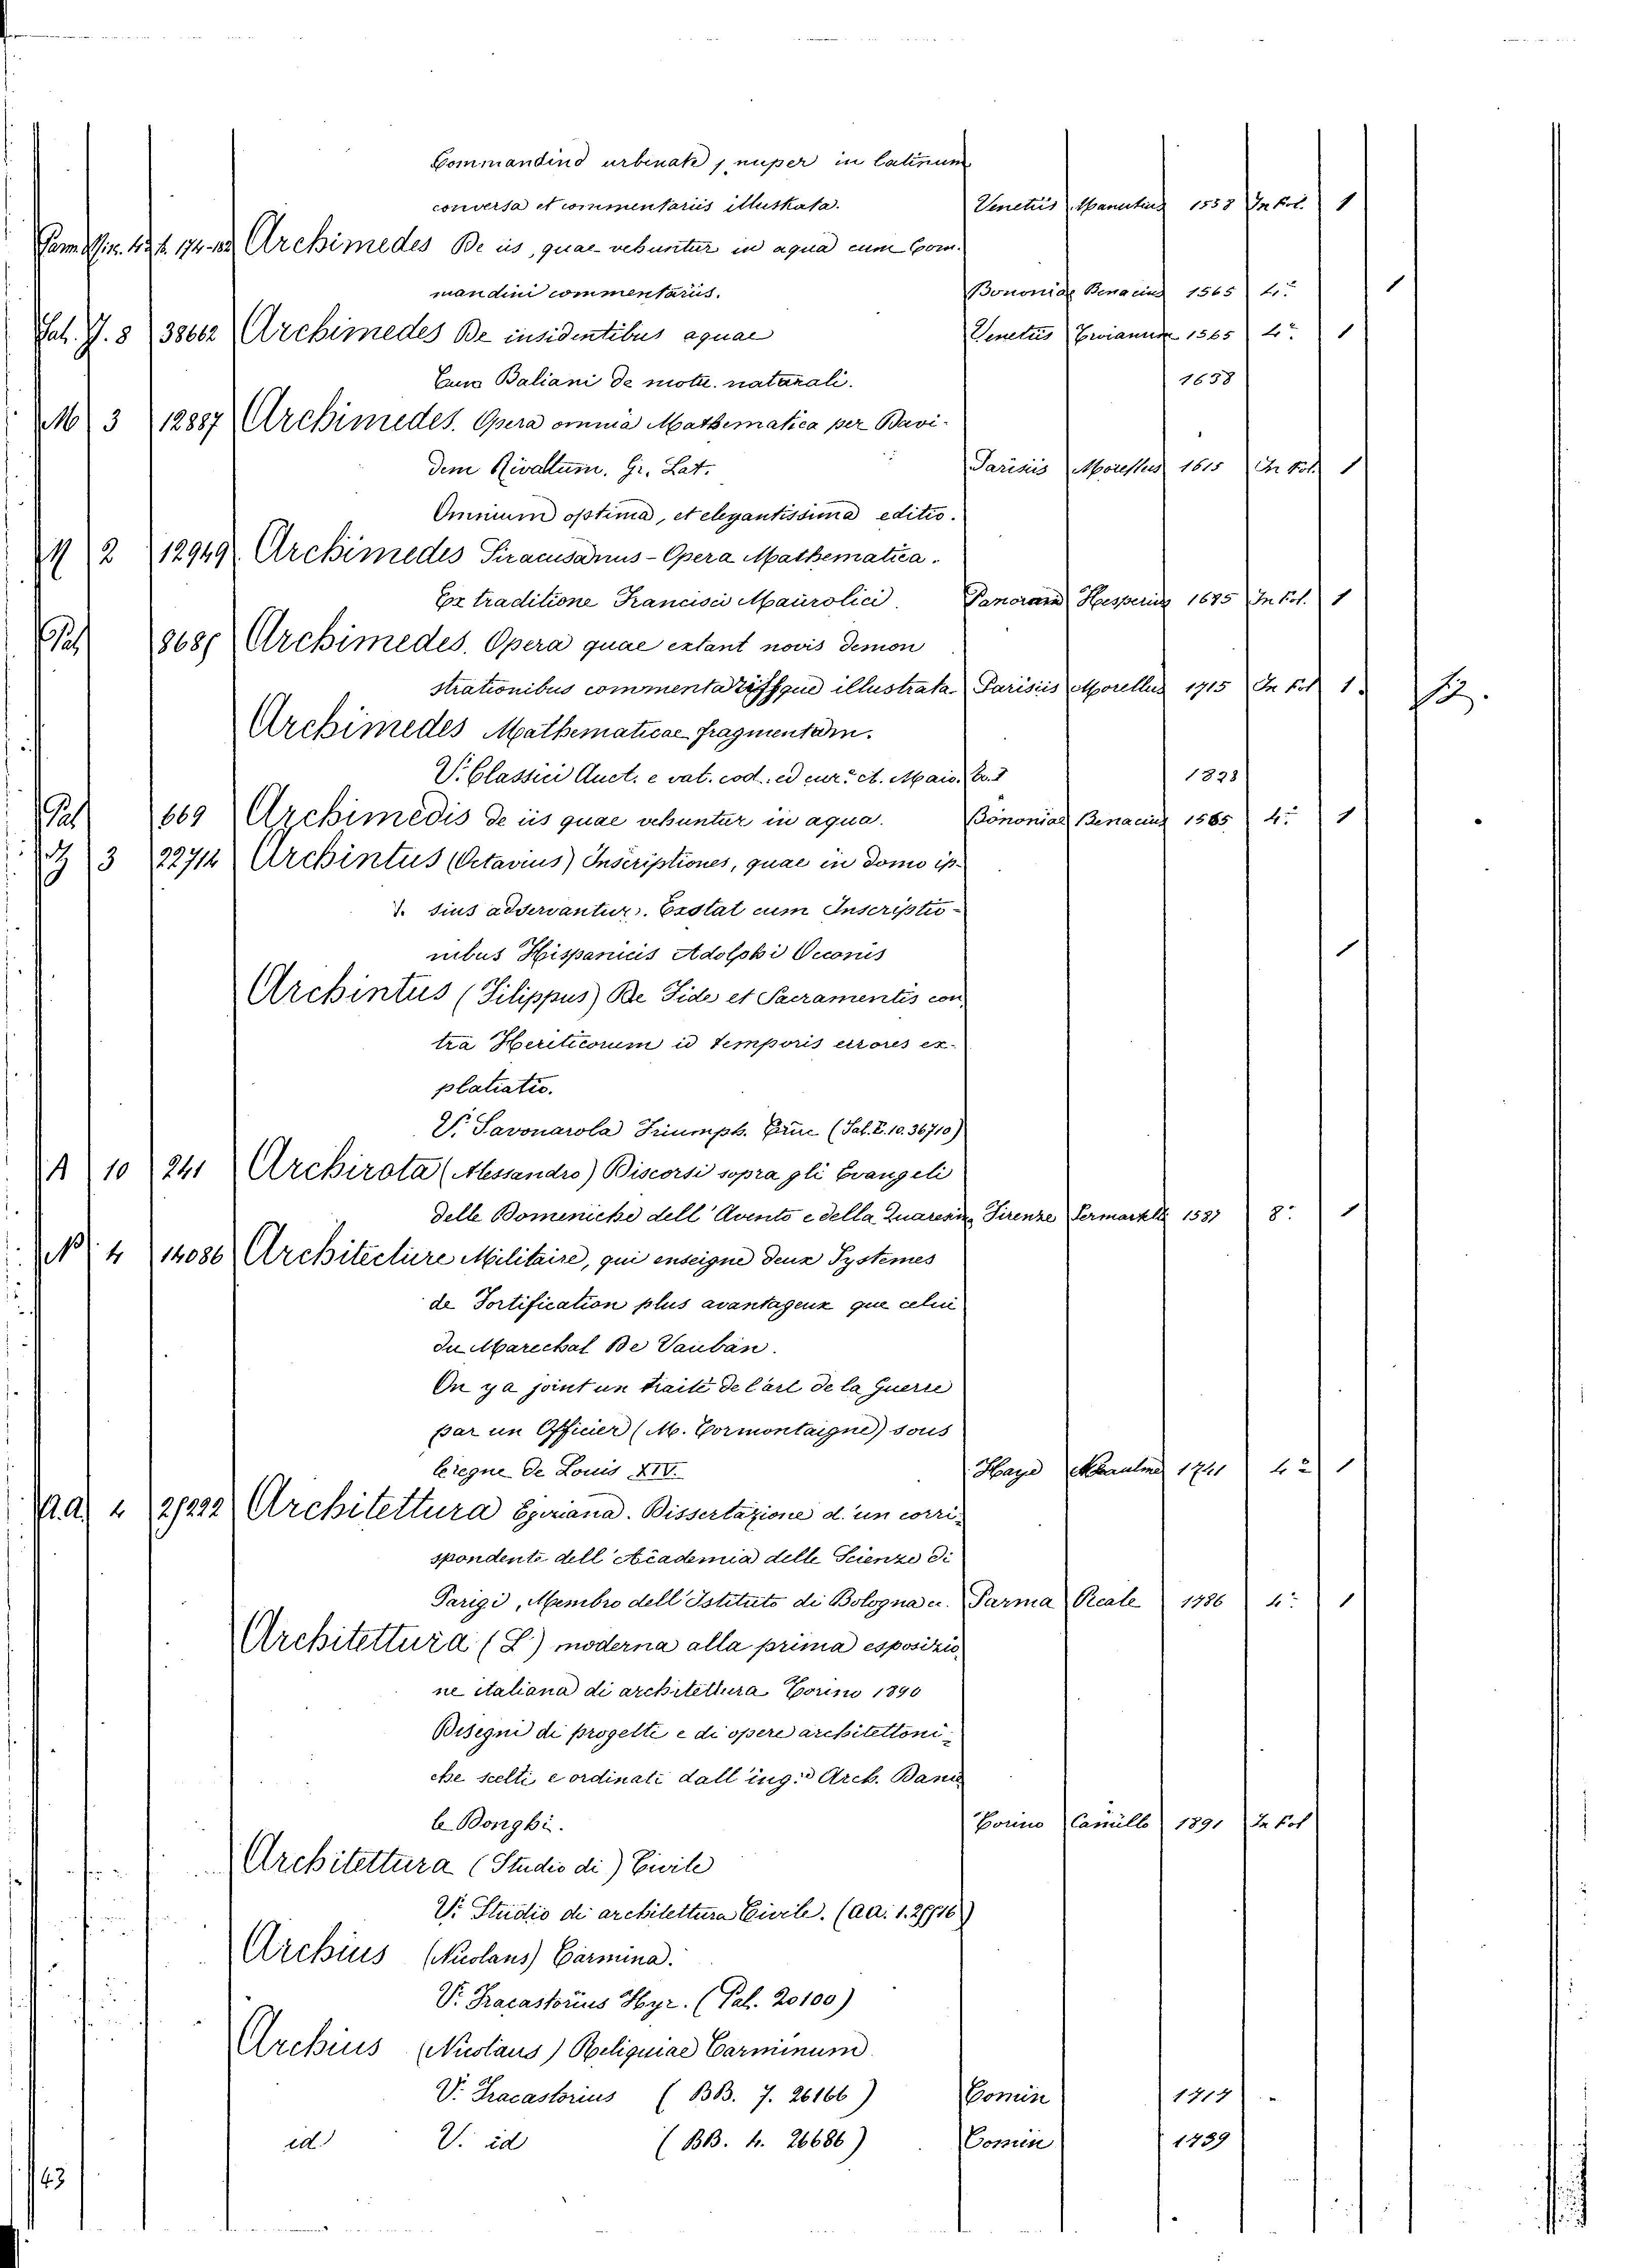 Commandino urbinate, nuper in latinum
conversa et commentariis illustrata. Venetiis Manutius 1558 In fol. 1
Archimedes De iis, quae vehuntur in aqua cum Com-
mandini commentariis. Bononiae Benacius 1565 4.° 1
38662 Archimedes De insidentibus aquae Venetiis Troianum 1565 4.° 1
Cum Baliani de motu naturali. 1638
M 3 12887 Archimedes. Opera omnia Mathematica per Davi-
dem Rivaltum. Gr. Lat. Parisiis Morellus 1615 In fol. 1
Omnium optima, et elegantissima editio.
2 12949 Archimedes Siracusanus - Opera Mathematica.
Ex traditione Francisci Maurolici. Panorami Hesperius 1685 In fol. 1
Pal Archimedes. Opera quae extant novis demon
strationibus commentariisque illustrata Parisiis Morellus 1715 In fol 1. 12.
Archimedes Mathematicae fragmentum.
V. Classici Auct. e vat. cod. ed cur. A. Maio. 1828
Pal 669 Archimedis de iis quae vehuntur in aqua. Bononiae Benacius 1565 4.° 1
3 22714 Archintus (Octavius) Inscriptiones, quae in domo ip-
sius adservantur. Exstat cum Inscriptio-
nibus Hispanicis Adolphi Occonis 1
Archintus (Filippus) De Fide et Sacramentis con
tra Heriticorum id temporis errores ex-
platiatio.
V. Savonarola Triumph. Cruc (Sal. E. 10. 36710)
A 10 241 Archirota (Alessandro) Discorsi sopra gli Evangeli
delle Domeniche dell' Avento e della Quaresima Firenze Sermartelli 1587 8.° 1
N 4 14086 Architecture Militaire, qui enseigne deux Systemes
de Fortification plus avantageux que celui
du Marechal De Vauban.
On y a joint un traité de l'art de la Guerre
par un Officier (M. Cormontaigne) sous
le regne de Louis XIV. Haye 1741 4.° 1
AA 4 Architettura Egiziana. Dissertazione d'un corri-
spondente dell' Academia delle Scienze di
Parigi, Membro dell' Istituto di Bologna ec. Parma Reale 1786 4.° 1
Architettura (L') moderna alla prima esposizio
ne italiana di architettura Torino 1890
Disegni di progetti e di opere architettoni-
che scelti e ordinati dall' ing. Arch. Danie
le Donghi. Torino Camilla 1891 In fol
Architettura (Studio di) Civile
V. Studio di architettura Civile. (AA. 1.
Archius (Nicolaus) Carmina.
V. Fracastorius Hyr. (Pal. 20100)
Archius (Nicolaus) Reliquiae Carminum
V. Fracastorius (BB. 7. 26166) Comin 1717
id. V. id (BB. 4. 26686) Comin 1739
43